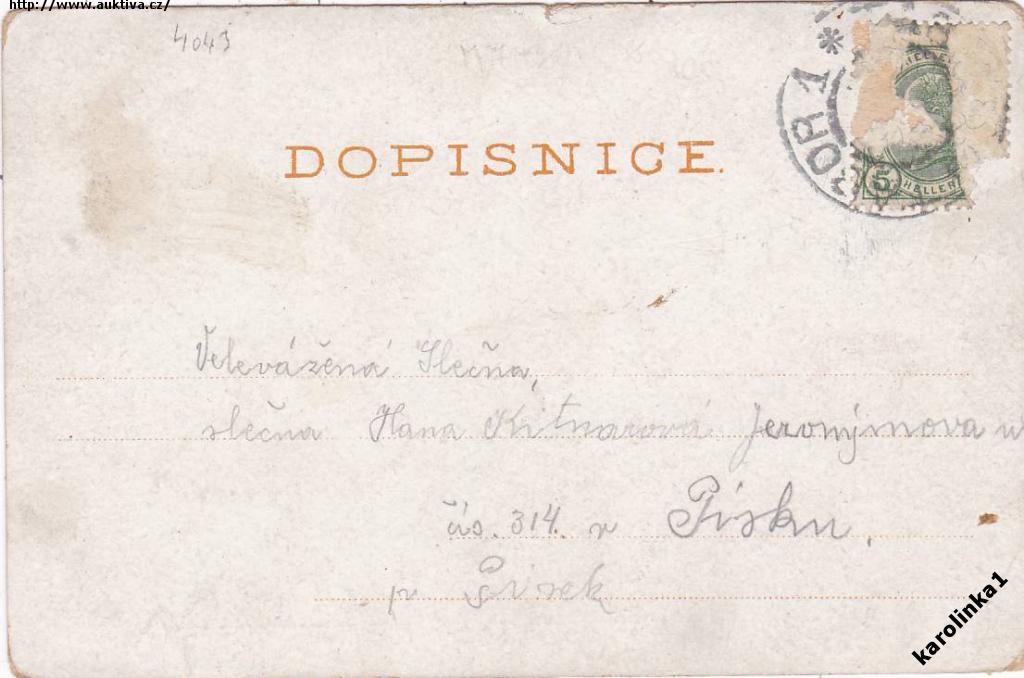 http://www.auktiva.cz/
4043
DOPISNICE.
5 HELLER
Velevážená Slečna,
slečna Hana Kitnarová Jeronýmova u
čís. 314. v Písku,
p Písek
karolinka1